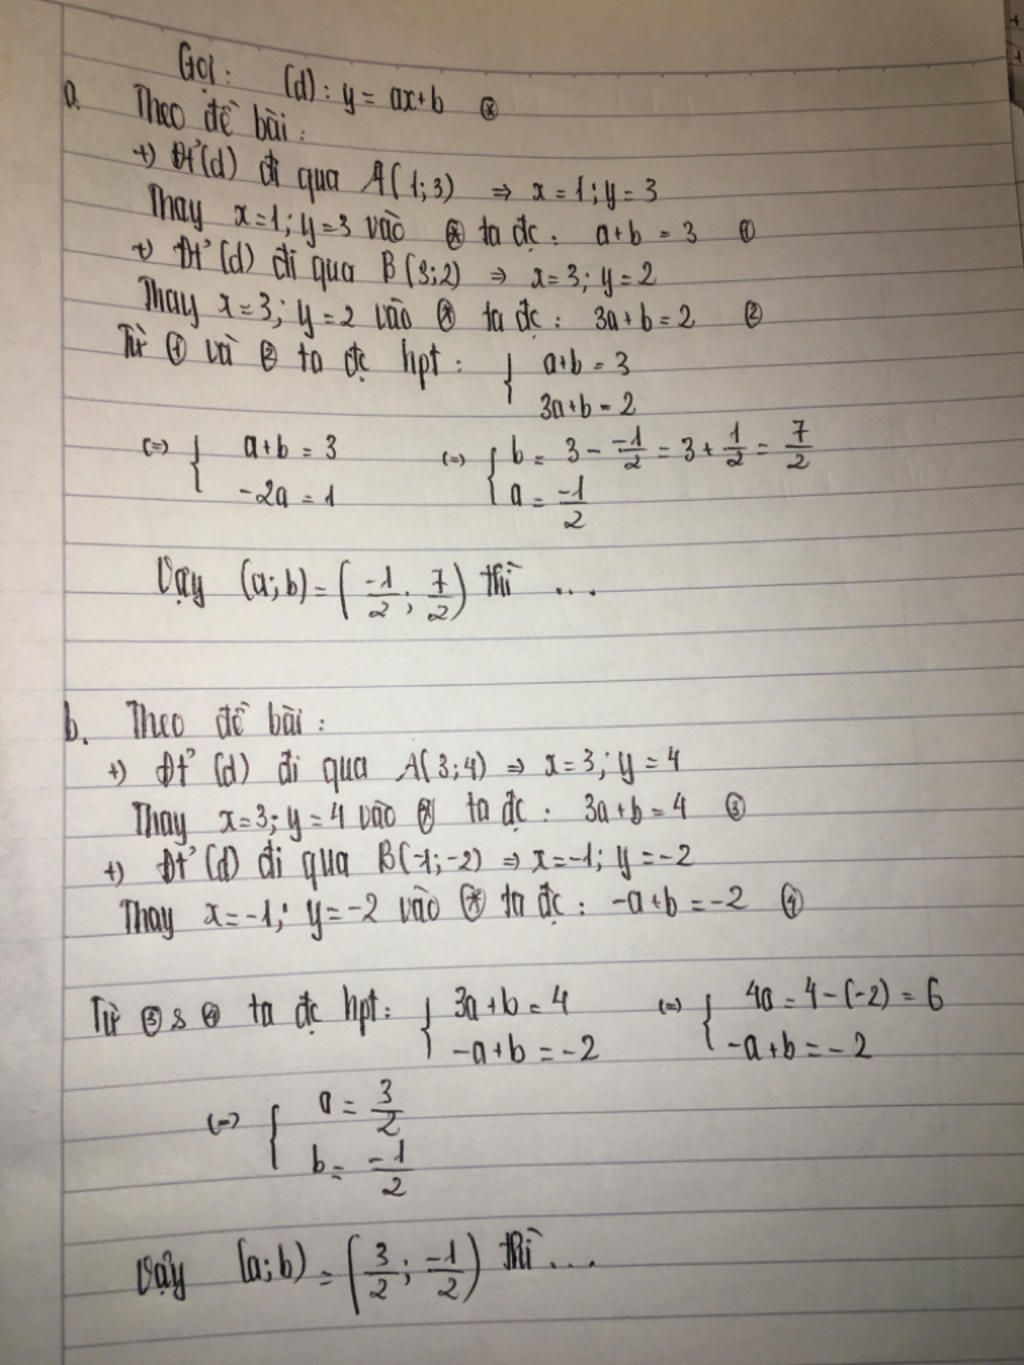 Gọi: (d): y = ax+b ⊛
a. Theo đề bài:
+) Đt (d) đi qua A(1;3) ⇒ x=1; y=3
Thay x=1; y=3 vào ⊛ ta đc: a+b = 3 ①
+) Đt (d) đi qua B(3;2) ⇒ x=3; y=2
Thay x=3; y=2 vào ⊛ ta đc: 3a+b=2 ②
Từ ① và ② ta đc hpt: { a+b=3
3a+b=2
(=) { a+b=3 (=) { b = 3 - -1/2 = 3 + 1/2 = 7/2
-2a=1 a = -1/2
Vậy (a;b) = (-1/2; 7/2) thì ...
b. Theo đề bài:
+) Đt (d) đi qua A(3;4) ⇒ x=3; y=4
Thay x=3; y=4 vào ⊛ ta đc: 3a+b=4 ③
+) Đt (d) đi qua B(-1;-2) ⇒ x=-1; y=-2
Thay x=-1; y=-2 vào ⊛ ta đc: -a+b=-2 ④
Từ ③ s ④ ta đc hpt: { 3a+b=4 (=) { 4a=4-(-2)=6
-a+b=-2 -a+b=-2
(=) { a = 3/2
b = -1/2
Vậy (a;b) = (3/2; -1/2) thì ...